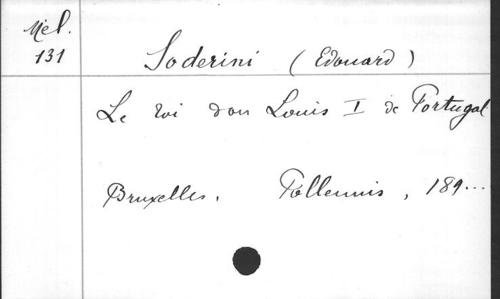 Mél.
131
Soderini (Edouard)
Le roi don Louis I de Portugal
Bruxelles. Pollennis, 189...